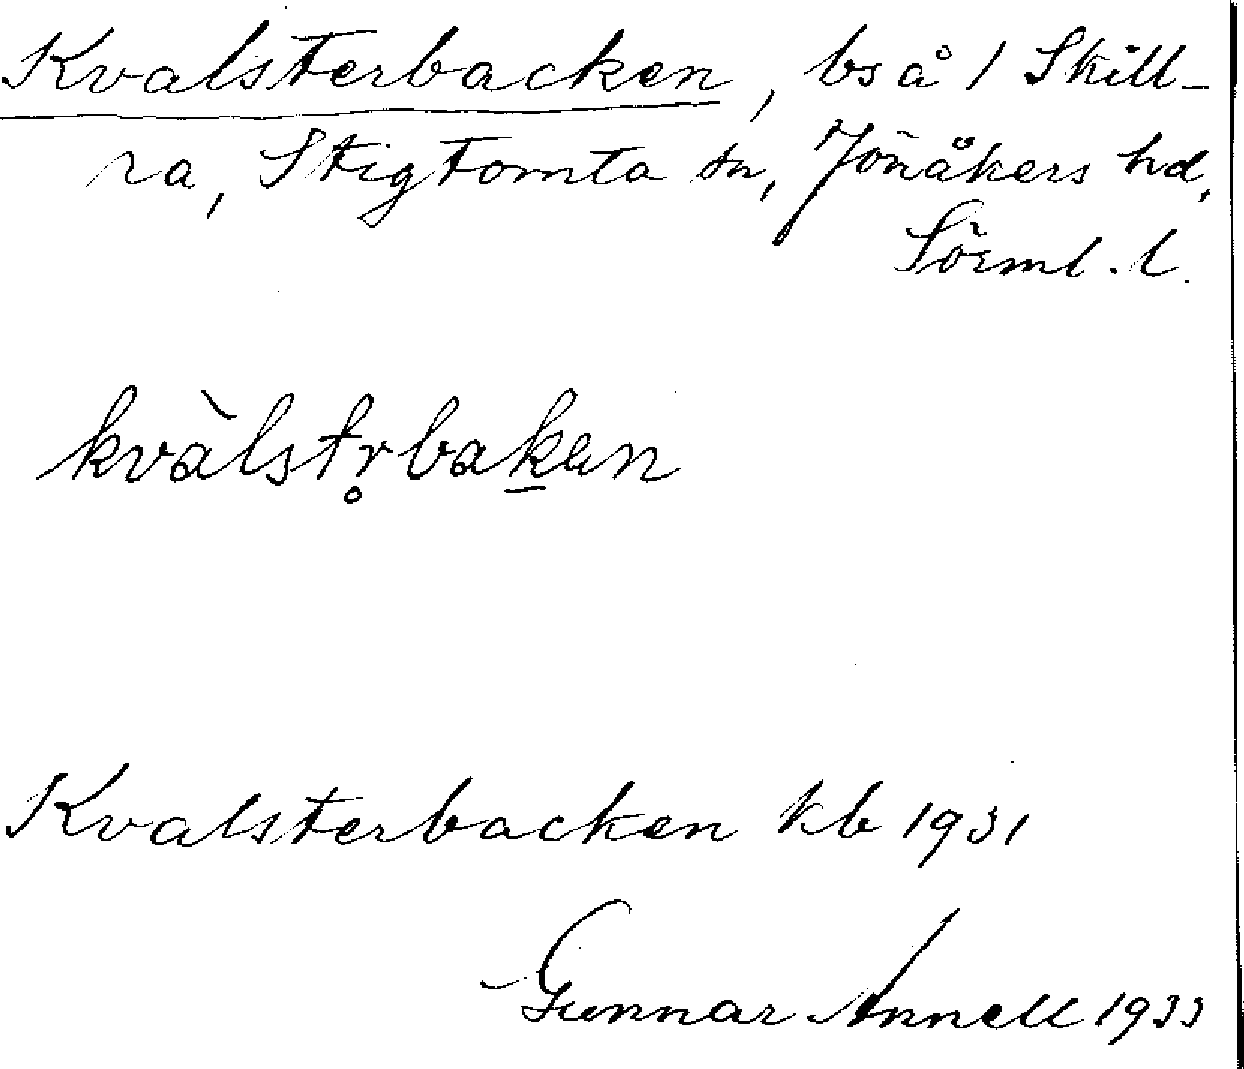 Kvalsterbacken, bs å 1 Skill-
ra, Stigtomta sn, Jönåkers hd,
Sörml. l.
kvàlstr̥baḵen
Kvalsterbacken kb 1931
Gunnar Annell 1933